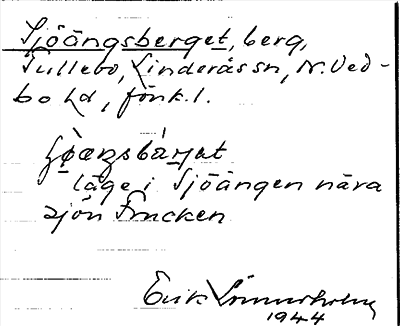 Sjöängsberget, berg,
Tullebo, Linderås sn, N. Ved-
bo hd, Jönk. l.
läge i Sjöängen nära
sjön Fricken
Erik Linnerholm
1944